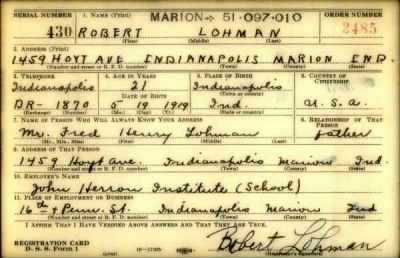 SERIAL NUMBER 1. NAME (Print) MARION 51-097-010 ORDER NUMBER
430 ROBERT LOHMAN 2485
(First) (Middle) (Last)
2. ADDRESS (Print)
1459 HOYT AVE INDIANAPOLIS MARION IND.
(Number and street or R. F. D. number) (Town) (County) (State)
3. TELEPHONE 4. AGE IN YEARS 5. PLACE OF BIRTH 6. COUNTRY OF CITIZENSHIP
Indianapolis 21 Indianapolis
DATE OF BIRTH (Town or county)
DR- 1870 5 19 1919 Ind. U.S.A.
(Exchange) (Number) (Mo.) (Day) (Yr.) (State or country)
7. NAME OF PERSON WHO WILL ALWAYS KNOW YOUR ADDRESS 8. RELATIONSHIP OF THAT PERSON
Mr. Fred Henry Lohman father
(Mr., Mrs., Miss) (First) (Middle) (Last)
9. ADDRESS OF THAT PERSON
1459 Hoyt Ave. Indianapolis Marion Ind.
(Number and street or R. F. D. number) (Town) (County) (State)
10. EMPLOYER'S NAME
John Herron Institute (School)
11. PLACE OF EMPLOYMENT OR BUSINESS
16th & Penn. St. Indianapolis Marion Ind
(Number and street or R. F. D. number) (Town) (County) (State)
I AFFIRM THAT I HAVE VERIFIED ABOVE ANSWERS AND THAT THEY ARE TRUE.
REGISTRATION CARD
D. S. S. Form 1 (over) 16-17105 Robert Lohman
(Registrant's signature)